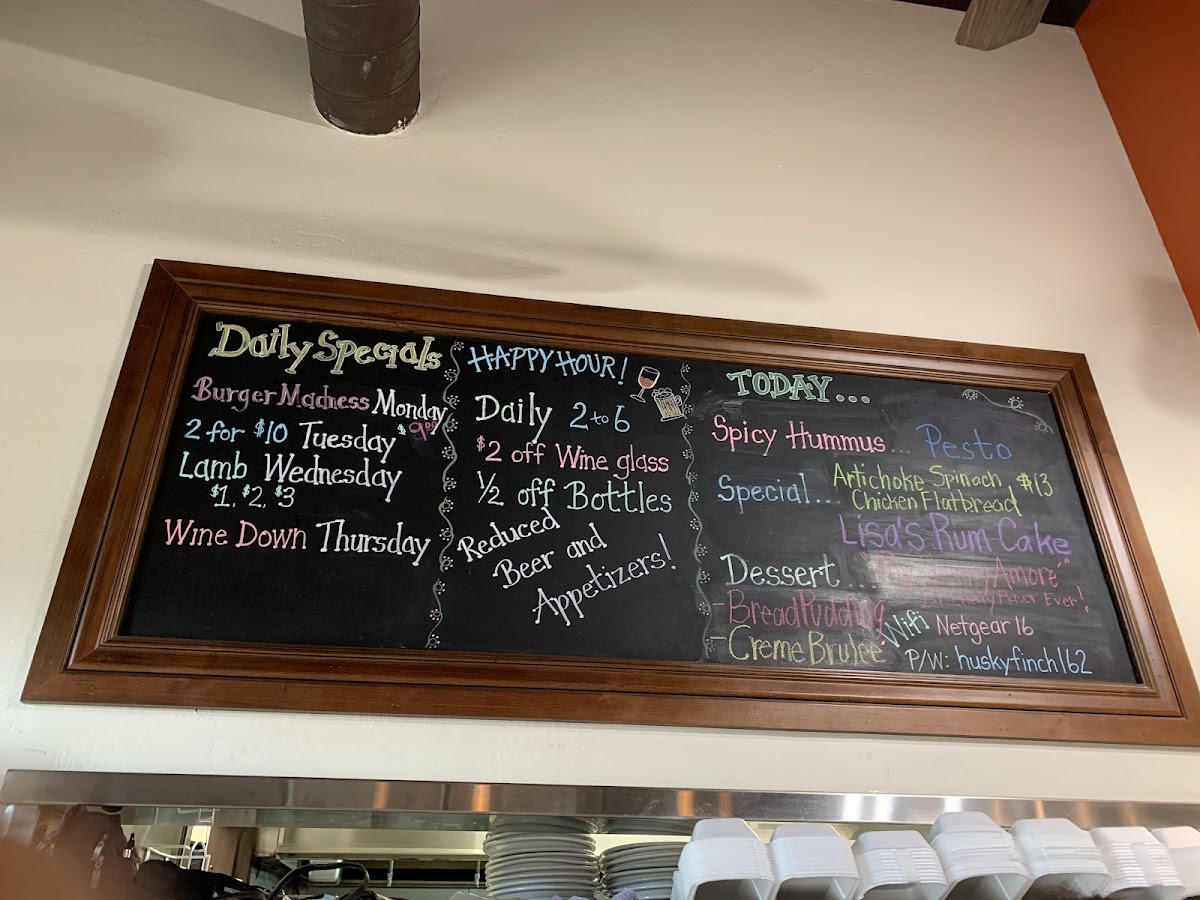 Daily Specials
Burger Madness Monday
$9.00
2 for $10 Tuesday
Lamb Wednesday
$1, $2, $3
Wine Down Thursday
HAPPY HOUR!
Daily 2 to 6
$2 off Wine glass
½ off Bottles
Reduced
Beer and
Appetizers!
TODAY...
Spicy Hummus... Pesto
Special... Artichoke Spinach $13
Chicken Flatbread
Lisa's Rum Cake
Dessert... Amore"
Flavor Ever!
-Bread Pudding
-Creme Brulee
Wifi Netgear 16
P/W: huskyfinch162